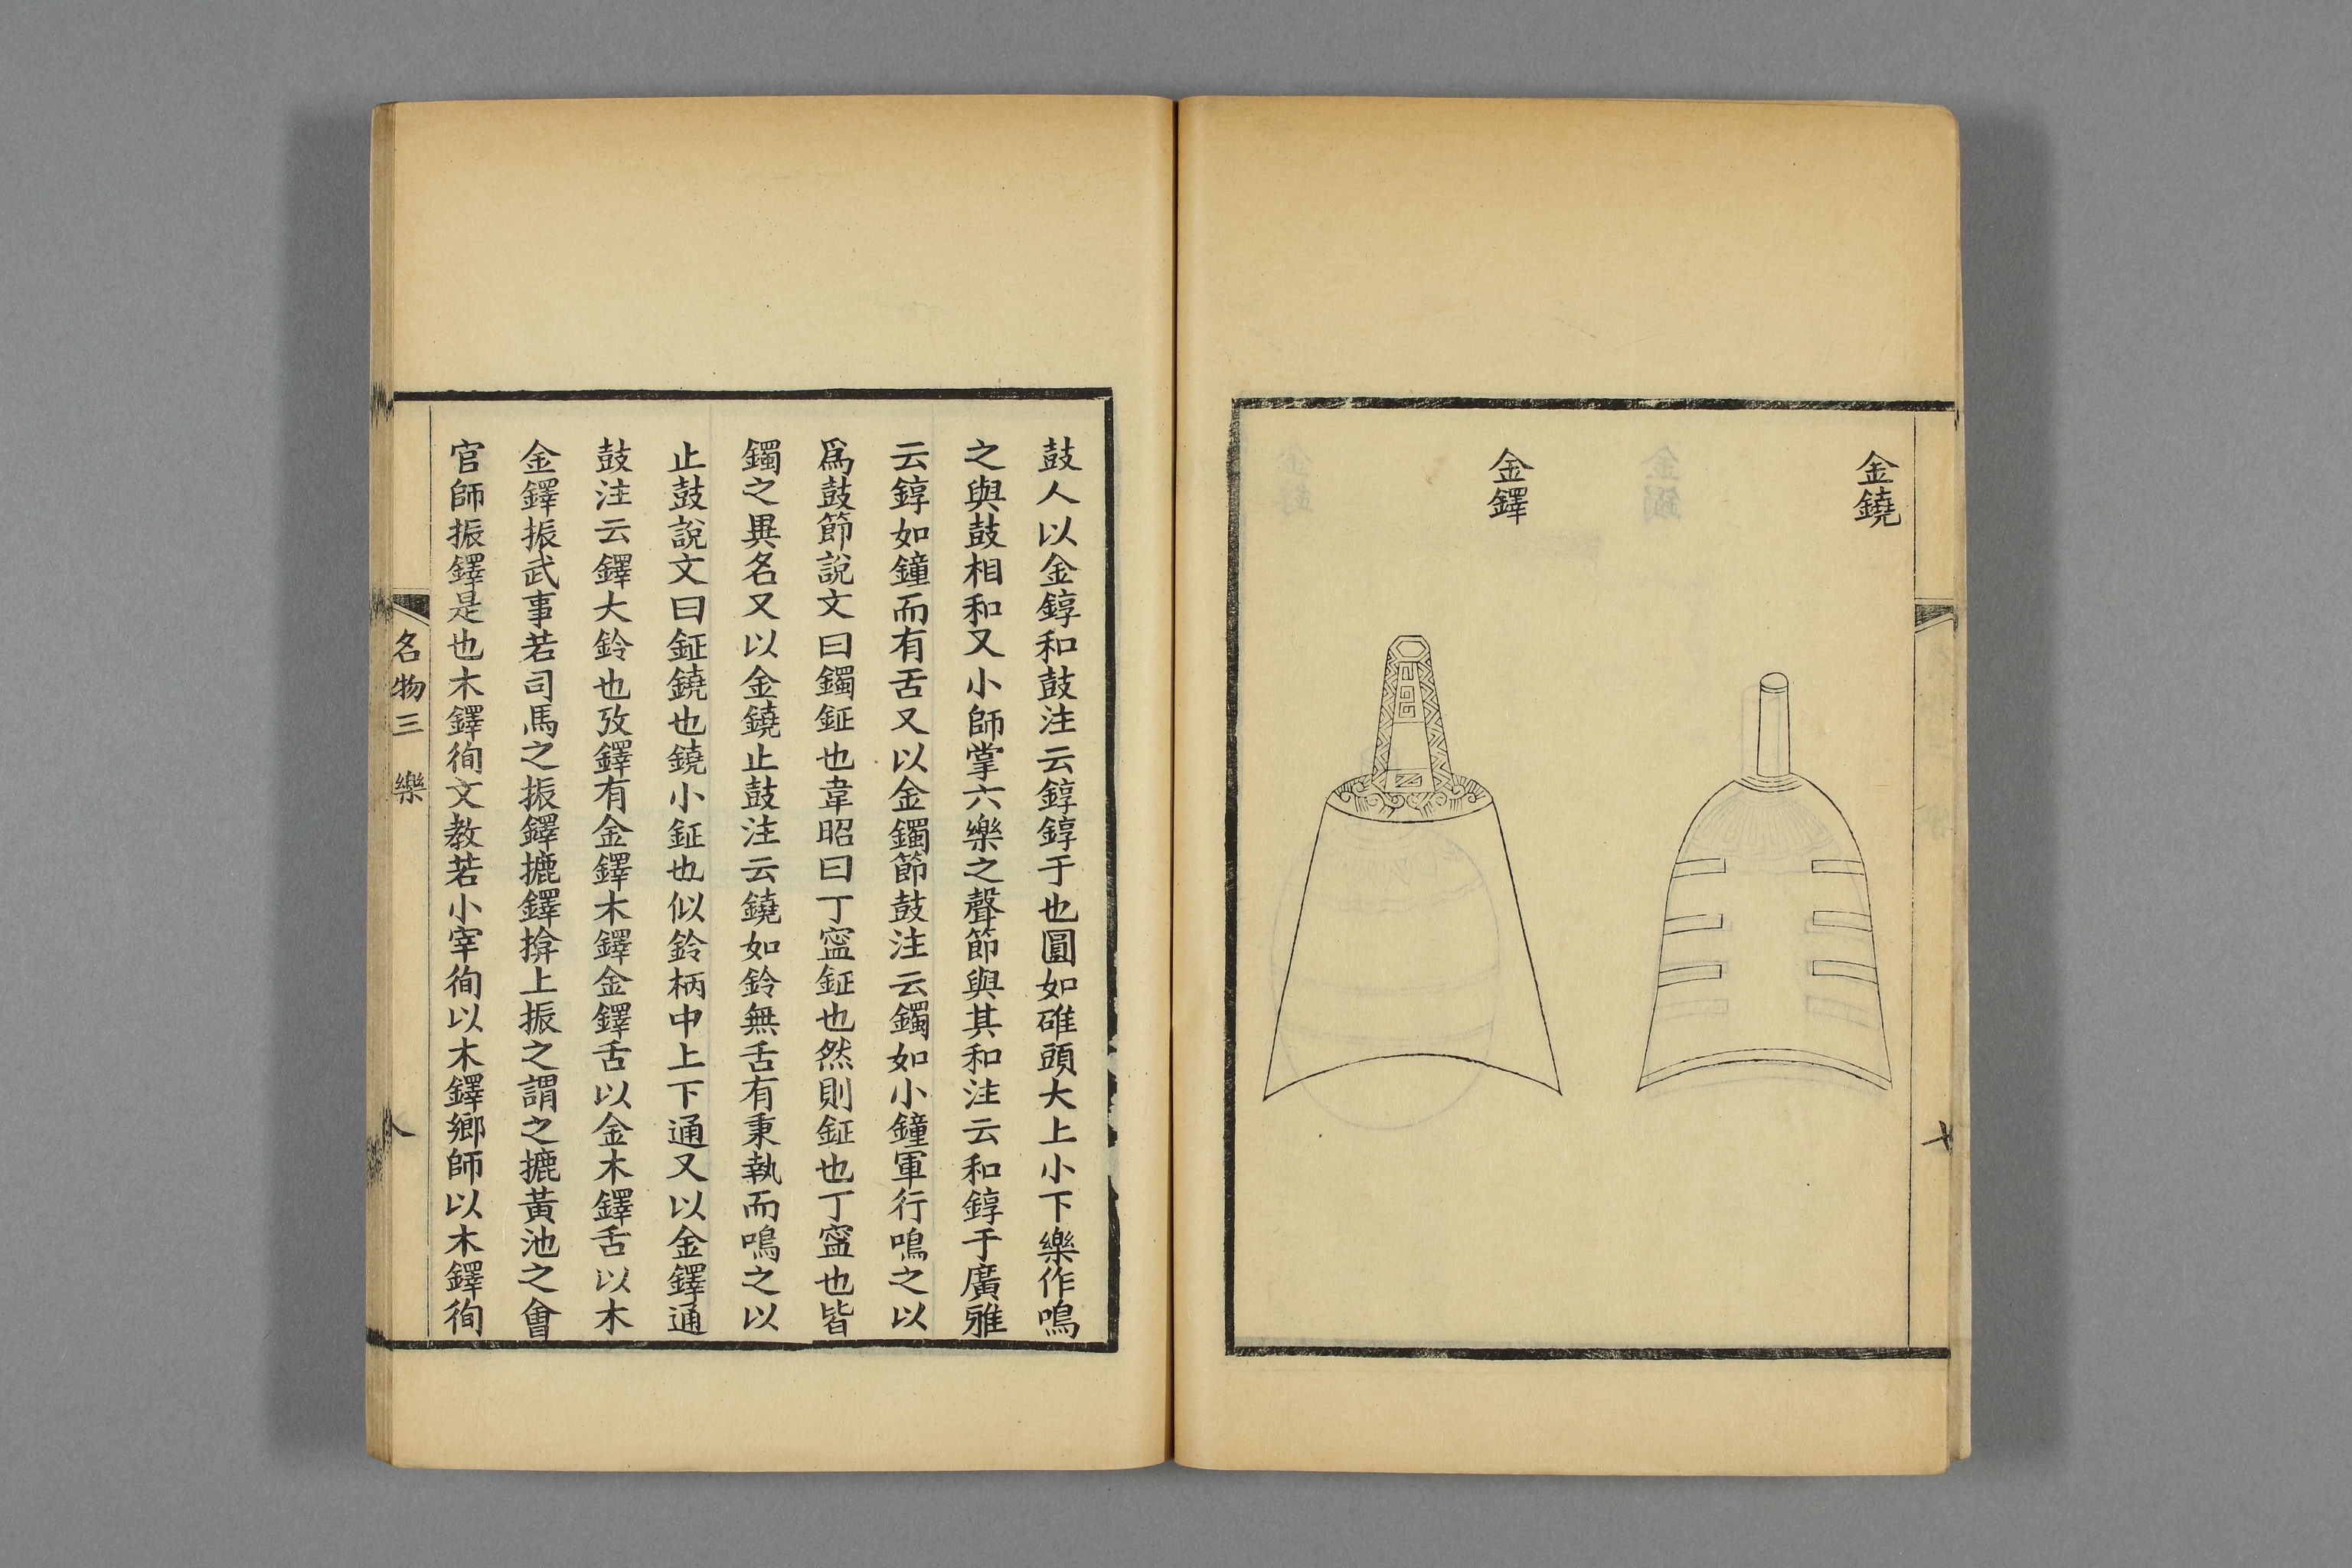 金鐃
金鐸
鼓人以金錞和鼓注云錞錞于也圓如碓頭大上小下樂作鳴
之與鼓相和又小師掌六樂之聲節與其和注云和錞于廣雅
云錞如鐘而有舌又以金鐲節鼓注云鐲如小鐘軍行鳴之以
爲鼓節說文曰鐲鉦也韋昭曰丁寍鉦也然則鉦也丁寍也皆
鐲之異名又以金鐃止鼓注云鐃如鈴無舌有秉執而鳴之以
止鼓說文曰鉦鐃也鐃小鉦也似鈴柄中上下通又以金鐸通
鼓注云鐸大鈴也攷鐸有金鐸木鐸金鐸舌以金木鐸舌以木
金鐸振武事若司馬之振鐸摝鐸揜上振之謂之摝黃池之會
官師振鐸是也木鐸徇文教若小宰徇以木鐸鄉師以木鐸徇
名物三 樂
八